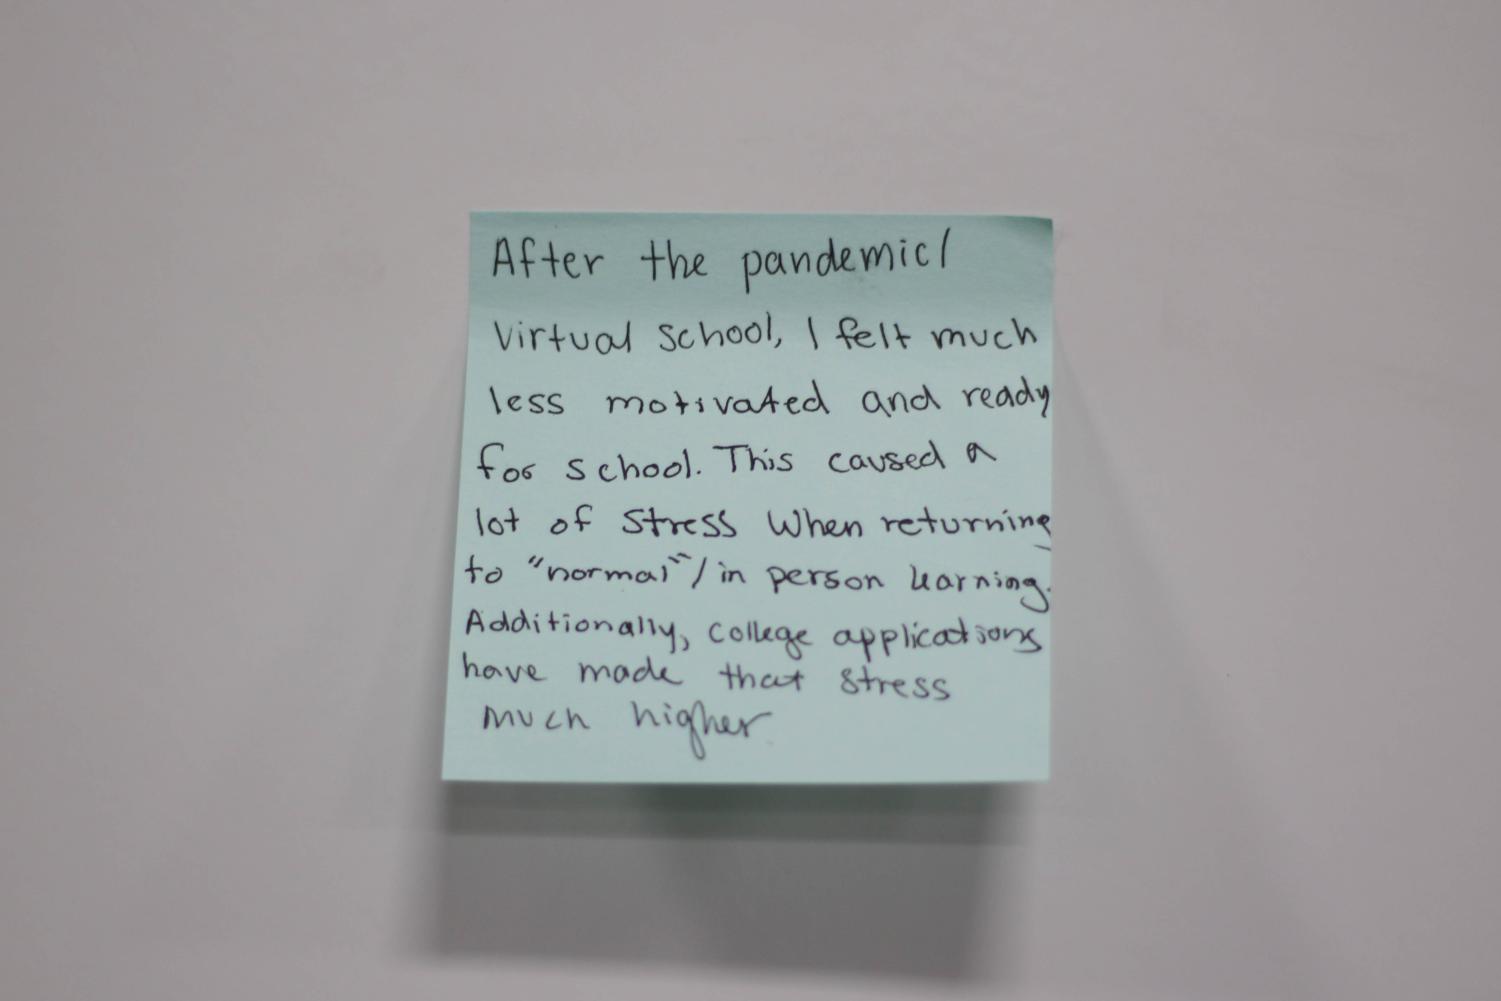 After the pandemic/
Virtual school, I felt much
less motivated and ready
for school. This caused a
lot of stress when returning
to "normal"/in person learning.
Additionally, college applications
have made that stress
much higher.